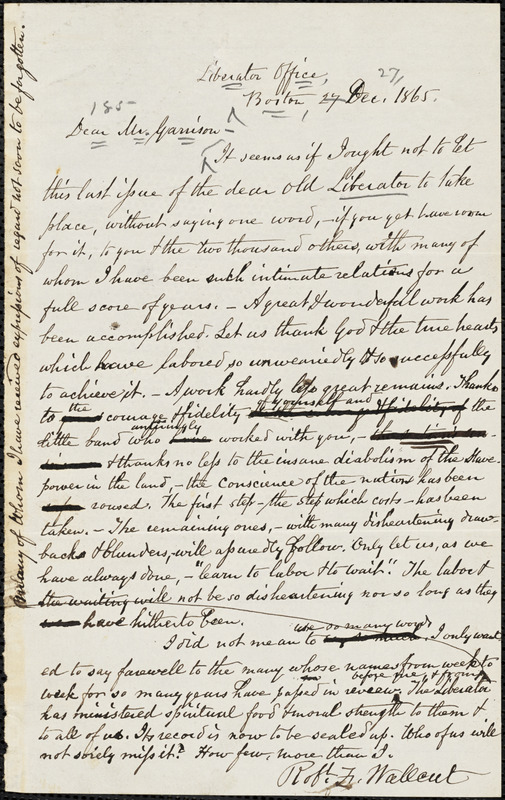 Liberator Office,
27,
Boston, 27 Dec. 1865.
185-
Dear Mr. Garrison -
It seems as if I ought not to let
this last issue of the dear old Liberator to take
place, without saying one word, - if you yet have room
for it, to you & the two thousand others, with many of
whom I have been in such intimate relations for a
full score of years. - A great & wonderful work has
been accomplished. Let us thank God & the true hearts
which have labored so unweariedly & so successfully
to achieve it. - A work hardly less great remains. Thanks
to the courage & fidelity of yourself and of the
little band who untiringly worked with you, -
& thanks no less to the insane diabolism of the Slave-
power in the land, - the conscience of the nation has been
roused. The first step - the step which costs - has been
taken. - The remaining ones, - with many disheartening draw-
backs & blunders, - will assuredly follow. Only let us, as we
have always done, - "learn to labor & to wait". The labor &
the waiting will not be so disheartening nor so long as they
have hitherto been.
I did not mean to use so many words, I only want
ed to say farewell to the many whose names from week to
week for so many years have passed in review before me. The Liberator
has ministered spiritual food & moral strength to them &
to all of us. Its record is now to be sealed up. Who of us will
not sorely miss it? How few, more than I.
Robt. F. Wallcut
and many of whom I have received expressions of regard not soon to be forgotten.